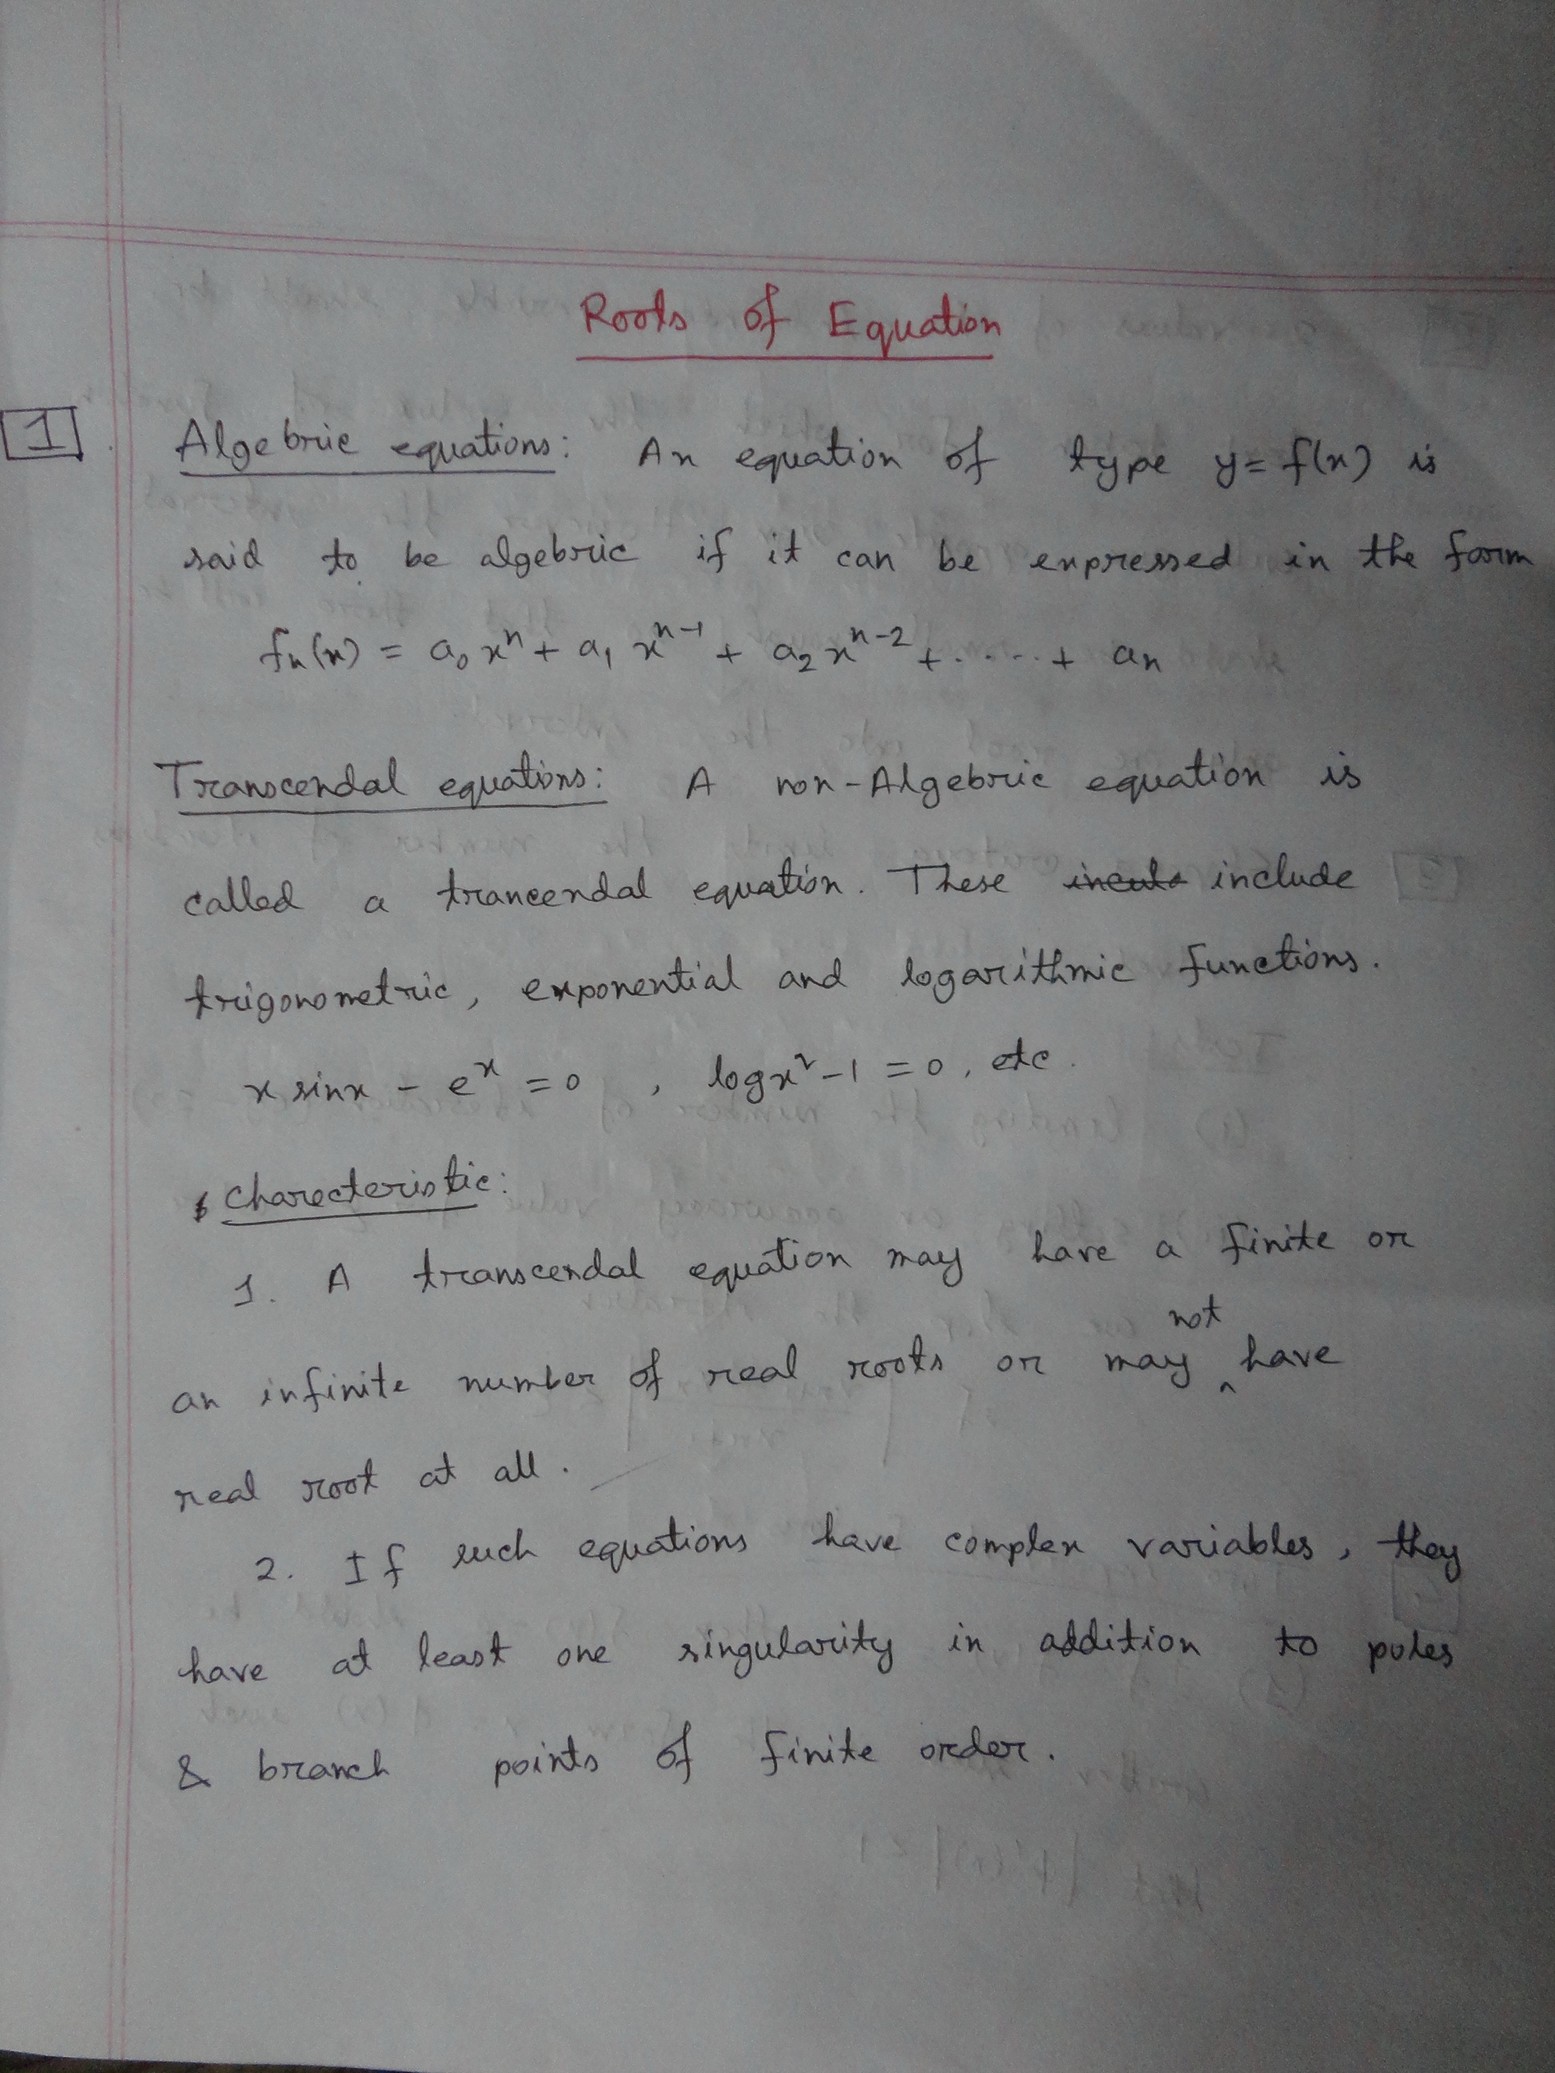 Roots of Equation
1 Algebric equations: An equation of type y = f(x) is
said to be algebric if it can be expressed in the form
fn(x) = a₀xⁿ + a₁ xⁿ⁻¹ + a₂xⁿ⁻² + ..... + an
Transcendal equations: A non-Algebric equation is
called a trancendal equation. These include
trigonometric, exponential and logarithmic functions.
x sinx - eˣ = 0 , logx² - 1 = 0, etc.
Charecteristic:
1. A transcendal equation may have a finite or
an infinite number of real roots or may not have
real root at all.
2. If such equations have complex variables, they
have at least one singularity in addition to poles
& branch points of finite order.